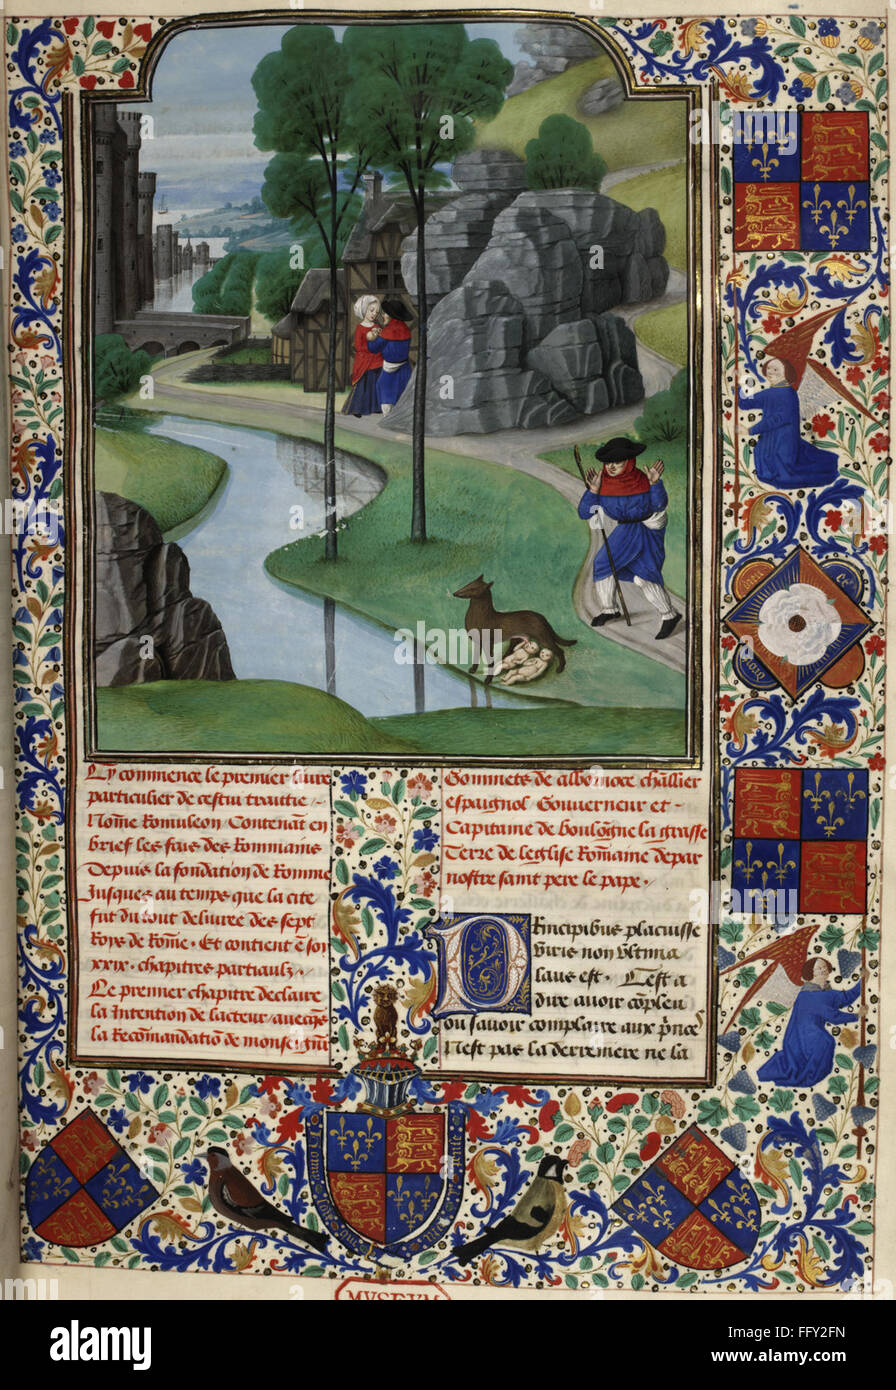 Cy commence le premier livre
particulier de cestui traittie
Nome Romuleon Contenant en
brief les fais des Rommains
Depuis la fondation de Romme
Jusques au temps que la cite
fut du tout delivree des sept
Roys de Rome. Et contient
xxix. chapitres partiaulz.
Le premier chapitre declaire
la Intention de lacteur avecqs
la Recomandation de monseigneur
Gommets de albornoce challier
espaignol Gouverneur et
Capitaine de boulogne la grasse
Terre de leglise Romaine depar
nostre saint pere le pape.
Principibus placuisse
viris non ultima
laus est. Cest a
dire avoir compleu
ou savoir complaire aux princes
Nest pas la derreniere ne la
Honi soit qui mal y pense
Dieu et
droit
MVSEVM
alamy
alamy
alamy stock photo
FFY2FN
www.alamy.com